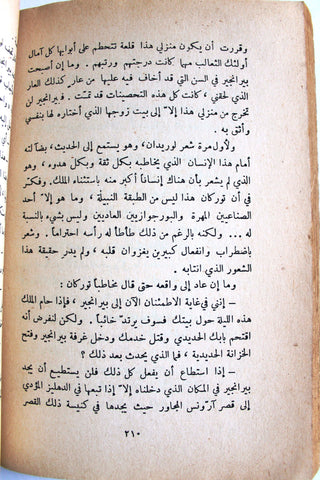 وقررت أن يكون منزلي هذا قلعة تتحطم على أبوابها كل آمال
أولئك الثعالب مهما كانت درجتهم ورتبهم . وما إن أصبحت
بيرانجير في السن التي قد أخاف فيه عليها من عار كذلك العار
الذي لحقني ، كانت كل هذه التحصينات قد تمّت . فبيرانجير لن
تخرج من منزلي هذا إلاّ إلى بيت زوجها الذي أختاره لها بنفسي
وأثق به .
ولأول مرة شعر لوريدان ، وهو يستمع إلى الحديث ، بضآلته
أمام هذا الإنسان الذي يخاطبه بكل ثقة وبكل هدوء ، وهو
الذي لم يشعر بأن هناك إنساناً أكبر منه باستثناء الملك . وفكّر
في أن توركان هذا ليس من الطبقة النبيلة ، وما هو إلاّ أحد
الصناعيين المهرة والبورجوازيين العاديين وليس بشيء بالنسبة
له ... ولكنه بالرغم من ذلك طأطأ له رأسه احتراماً . وشعر
باضطراب وانفعال كبيرين يغزوان قلبه ، ولم يدر حقيقة هذا
الشعور الذي انتابه .
وما إن عاد إلى واقعه حتى قال مخاطباً توركان :
ـ إنني في غاية الاطمئنان الآن إلى بيرانجير ، فإذا حام الملك
هذه الليلة حول بيتك فسوف يرتدّ خائباً . ولكن لنفرض أنه
اقتحم بابك الحديدي وقتل خدمك ودخل غرفة بيرانجير وفتح
الخزانة الحديدية ، فما الذي يحدث بعد ذلك ؟
ـ إذا استطاع أن يفعل كل ذلك فلن يستطيع أن يجد
بيرانجير في المكان الذي دخلناه إلاّ إذا تبعها في الدهليز المؤدي
إلى قصر آرّونس المجاور حيث يجدها في كنيسة ذلك القصر
٢١٠